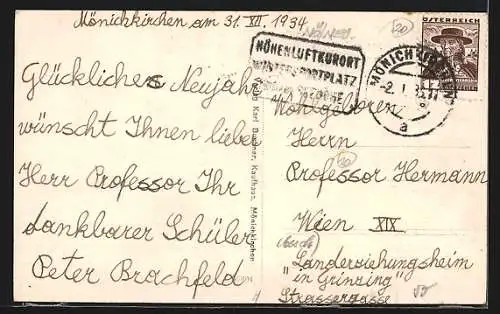 Mönichkirchen am 31. XII. 1934
Glückliches Neujahr
wünscht Ihnen lieber
Herr Professor Ihr
dankbarer Schüler
Peter Brachfeld
HÖHENLUFTKURORT
WINTERSPORTPLATZ
ÖSTERREICH
MÖNICHKIRCHEN
-2. I. 35
a
20
Karl Kaufhaus, Mönichkirchen
Wohlgeboren
Herrn
20
Professor Hermann
Wien XIX
"Landerziehungsheim
in Grinzing"
Strassergasse